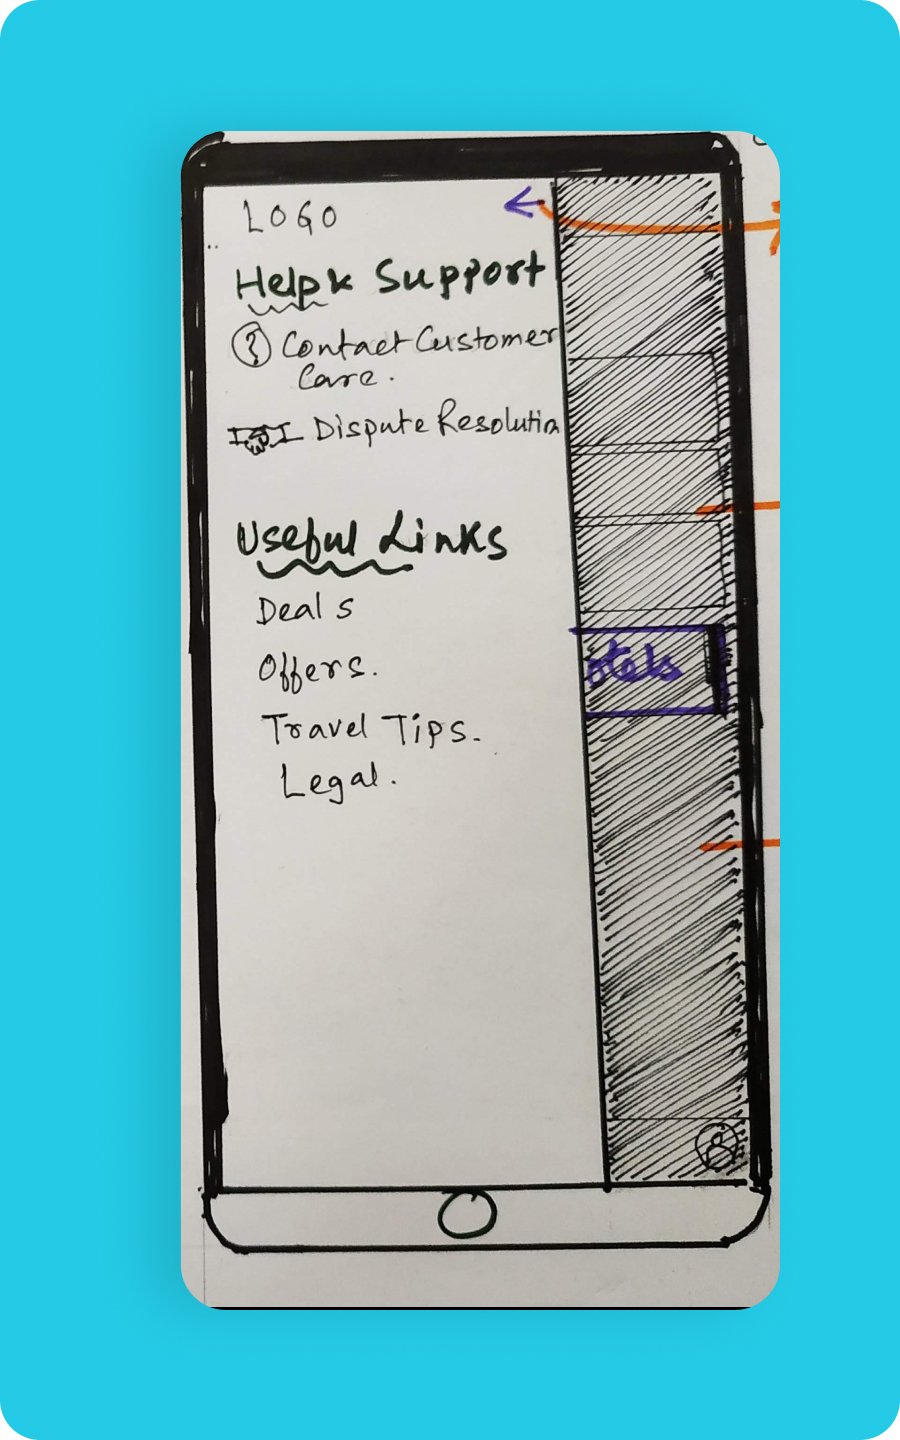 LOGO
Help & Support
Contact Customer
Care.
Dispute Resolution
Useful Links
Deals
Offers.
otels
Travel Tips.
Legal.